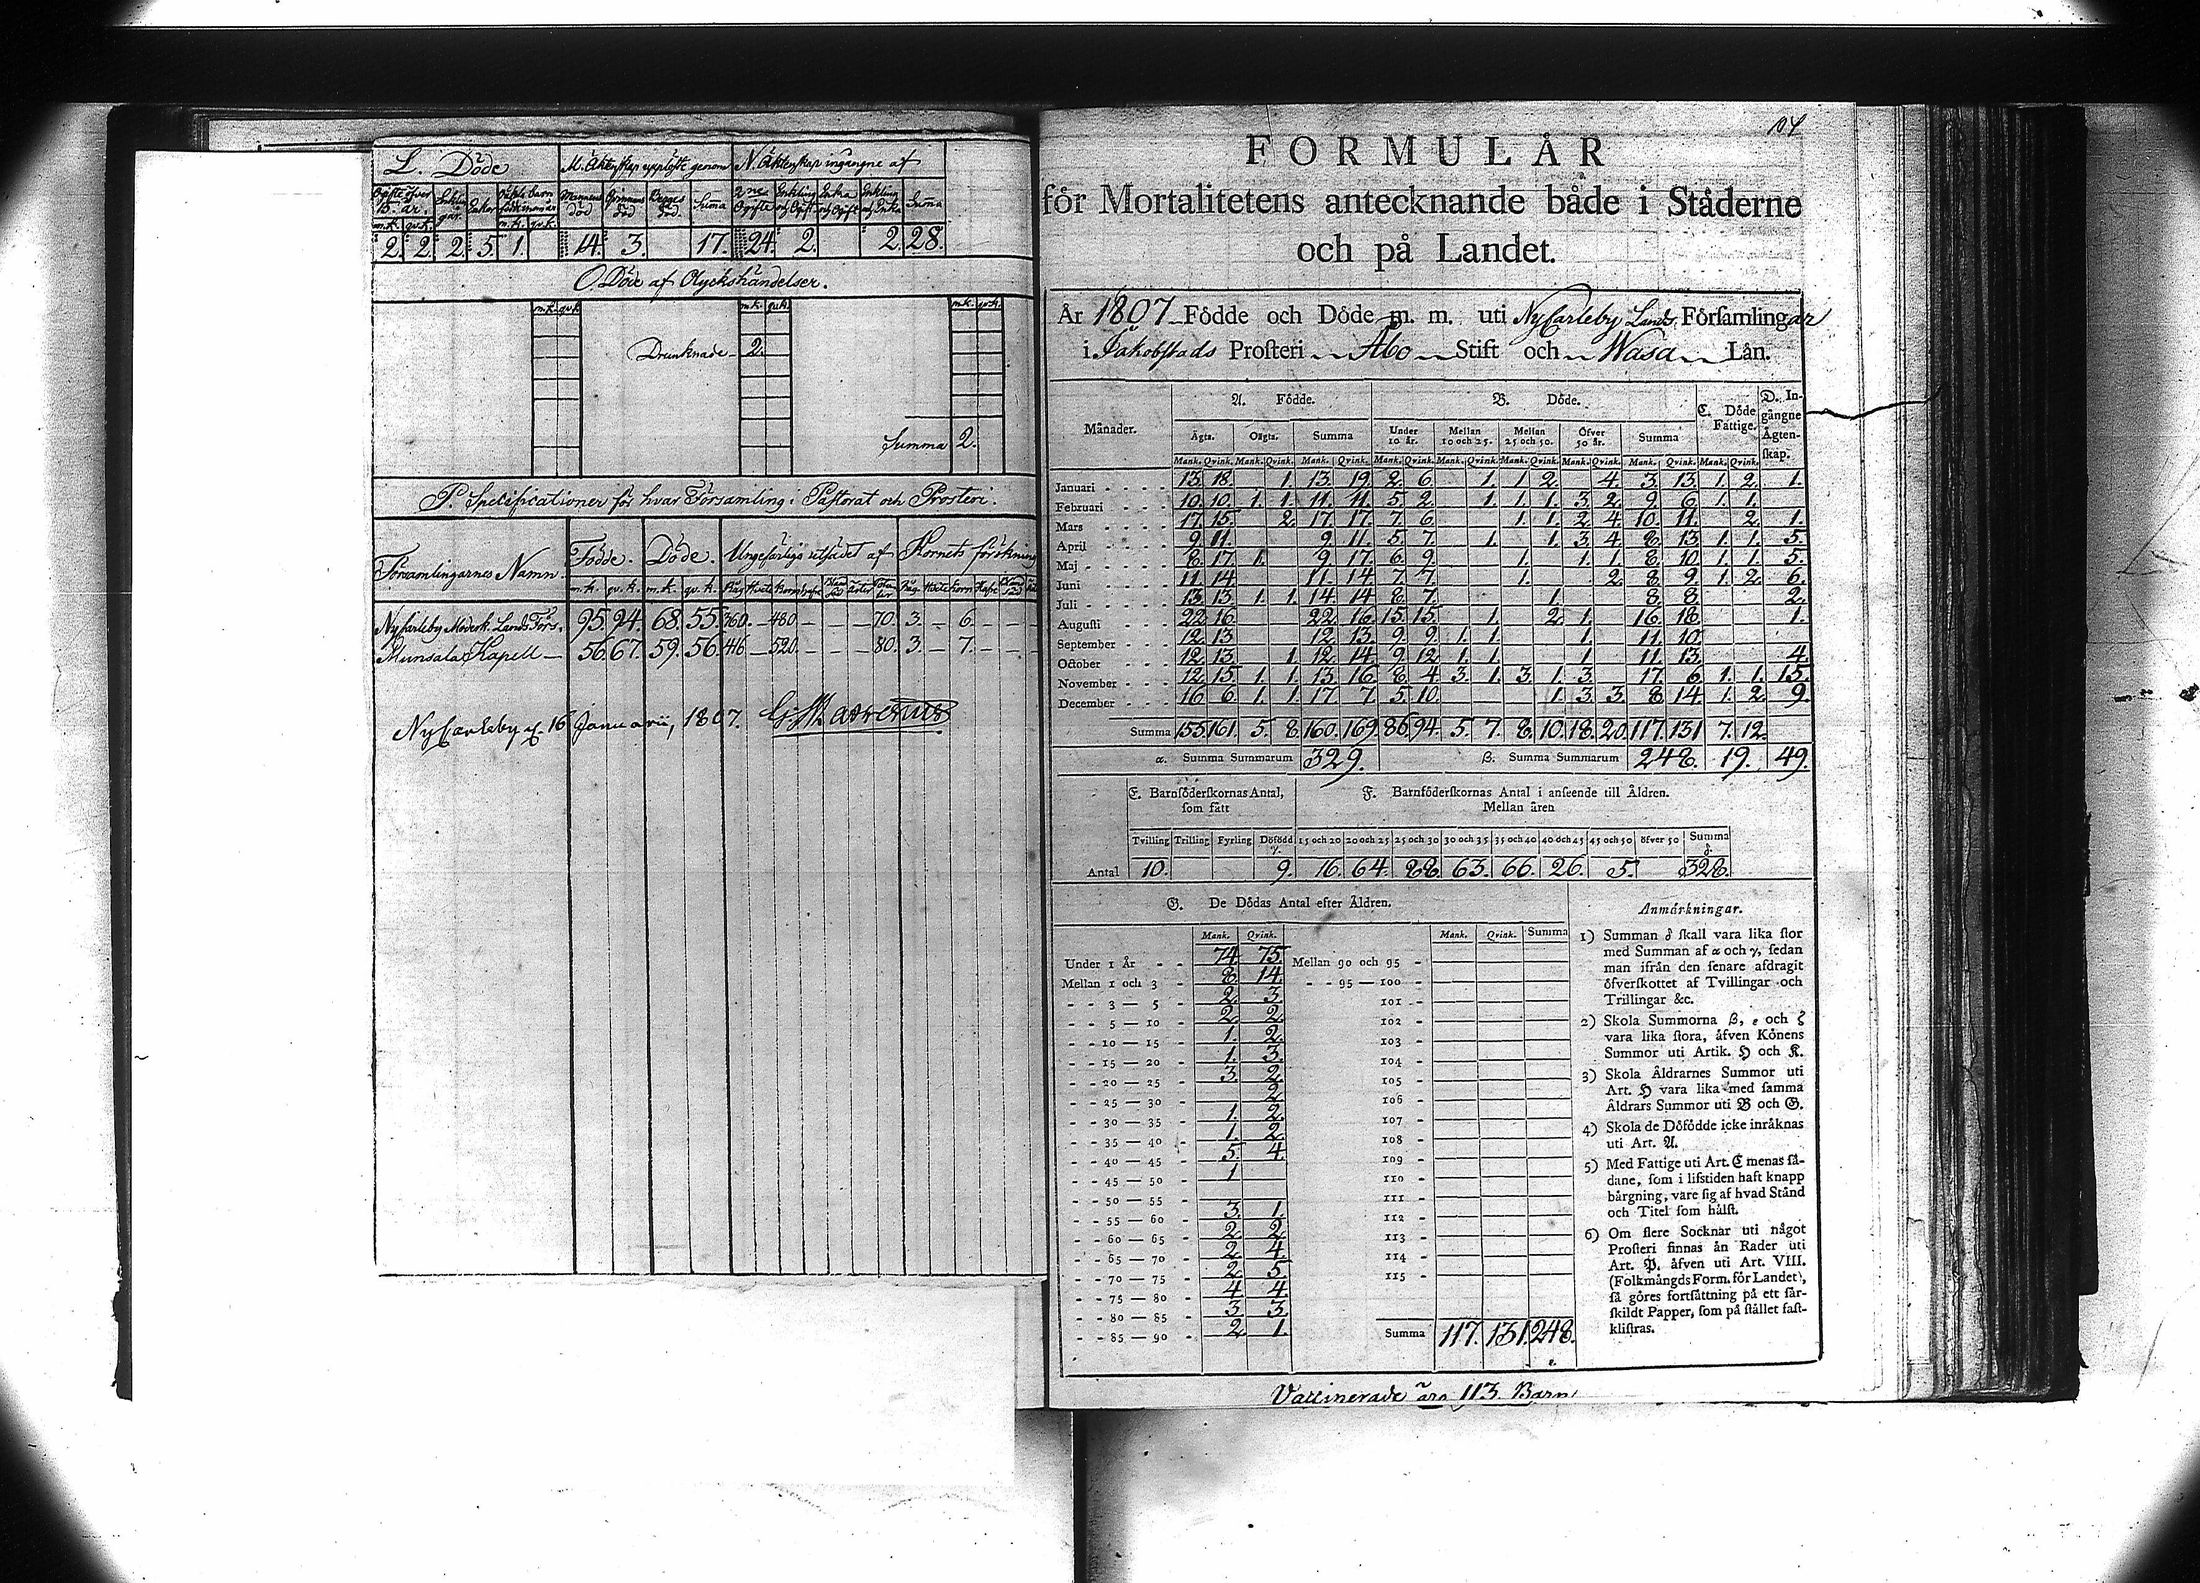 L. Döde. M. Äktenskap upplöste genom N. Äktenskap ingångne af
m.k. qv.k. m.k. qv.k. Summa Summa
2. 2. 2. 5. 1. 14. 3. 17. 24. 2. 2. 28.
O. Döde af Olyckshändelser.
m.k. qv.k. m.k. qv.k. m.k. qv.k.
Drunknade 2.
Summa 2.
P. Specificationer för hvar Församling i Pastorat och Prosteri.
Församlingarnes Namn. Födde. Döde. Ungefärliga utsädet af Kornets förökning
m.k. qv.k. m.k. qv.k. Råg Hvete Korn Råg. Hvete Korn
NyCarleby Moderk. Lands Förs. 95. 94. 68. 55. 360. 480 70. 3. 6.
Munsala Kapell 56. 67. 59. 56. 416 520. 80. 3. 7.
NyCarleby d. 16 Januarii, 1807.
104
FORMULÅR
för Mortalitetens antecknande både i Ståderne
och på Landet.
År 1807 Födde och Döde m. m. uti NyCarleby Lands Förſamlingar
i Jakobstads Proſteri Åbo Stift och Wasa Lån.
Månader. A. Födde. B. Döde. C. Döde Fattige. D. Ingångne Ågtenſkap.
Ägta. Oägta. Summa Under 10 år. Mellan 10 och 25. Mellan 25 och 50. Öfver 50 år. Summa
Mank. Qvink. Mank. Qvink. Mank. Qvink. Mank. Qvink. Mank. Qvink. Mank. Qvink. Mank. Qvink. Mank. Qvink. Mank. Qvink.
Januari 13. 18. 1. 13. 19. 2. 6. 1. 1 2. 4. 3. 13. 1. 2. 1.
Februari 10. 10. 1. 1. 11. 11. 5. 2. 1. 1. 1. 3. 2. 9. 6. 1. 1.
Mars 17. 15. 2. 17. 17. 7. 6. 1. 1. 2. 4. 10. 11. 2. 1.
April 9. 11. 9. 11. 5. 7. 1. 1. 3 4. 8. 13. 1. 1. 5.
Maj 8. 17. 1. 9. 17. 6. 9. 1. 1. 1. 8. 10. 1. 1. 5.
Juni 11. 14. 11. 14. 7. 7. 1. 2. 8. 9. 1. 2. 6.
Juli 13. 13. 1. 1. 14. 14. 8. 7. 1. 8. 8. 2.
Auguſti 22. 16. 22. 16. 15. 15. 1. 2. 1. 16. 18. 1.
September 12. 13. 12. 13. 9. 9. 1. 1. 1. 11. 10.
Oktober 12. 13. 1. 12. 14. 9. 12. 1. 1. 1. 11. 13. 4.
November 12. 15. 1. 1. 13. 16. 8. 4. 3. 1. 3. 1. 3. 17. 6. 1. 1. 15.
December 16. 6. 1. 1. 17. 7. 5. 10. 1. 3 3. 8. 14. 1. 2. 9.
Summa 155. 161. 5. 8. 160. 169. 86. 94. 5. 7. 8. 10. 18. 20. 117. 131 7. 12.
α. Summa Summarum 329. β. Summa Summarum 248. 19. 49.
E. Barnföderſkornas Antal, ſom fått F. Barnföderſkornas Antal i anſeende till Åldren.
Mellan åren
Tvilling Trilling Fyrling Döfödd γ. 15 och 20 20 och 25 25 och 30 30 och 35 35 och 40 40 och 45 45 och 50 öfver 50 Summa δ.
Antal 10. 9. 16. 64. 88. 63. 66. 26. 5. 328.
G. De Dödas Antal efter Åldren.
Mank. Qvink. Mank. Qvink. Summa
Under 1 År 74. 75. Mellan 90 och 95
Mellan 1 och 3 8. 14. 95 — 100
3 — 5 2. 3. 101
5 — 10 2. 2. 102
10 — 15 1. 2. 103
15 — 20 1. 3. 104
20 — 25 3. 2. 105
25 — 30 2 106
30 — 35 1. 2. 107
35 — 40 1. 2. 108
40 — 45 5. 4. 109
45 — 50 1 110
50 — 55 111
55 — 60 3. 1. 112
60 — 65 2. 2. 113
65 — 70 2. 4. 114
70 — 75 2. 5. 115
75 — 80 4. 4.
80 — 85 3. 3.
85 — 90 2. 1. Summa 117. 131. 248.
ε.
Anmårkningar.
1) Summan δ ſkall vara lika ſtor
med Summan af α och γ, ſedan
man ifrån den ſenare afdragit
öfverſkottet af Tvillingar och
Trillingar &c.
2) Skola Summorna β, ε och ζ
vara lika ſtora, åfven Könens
Summor uti Artik. H och K.
3) Skola Åldrarnes Summor uti
Art. H vara lika med ſamma
Åldrars Summor uti B och G.
4) Skola de Döfödde icke inråknas
uti Art. A.
5) Med Fattige uti Art. C menas ſå-
dane, ſom i lifstiden haft knapp
bårgning, vare ſig af hvad Stånd
och Titel ſom hålſt.
6) Om flere Socknar uti något
Proſteri finnas ån Rader uti
Art. P. åfven uti Art. VIII.
(Folkmångds Form. för Landet),
ſå göres fortſåttning på ett ſår-
ſkildt Papper, ſom på ſtållet faſt-
kliſtras.
Vaccinerade äro 113. Barn